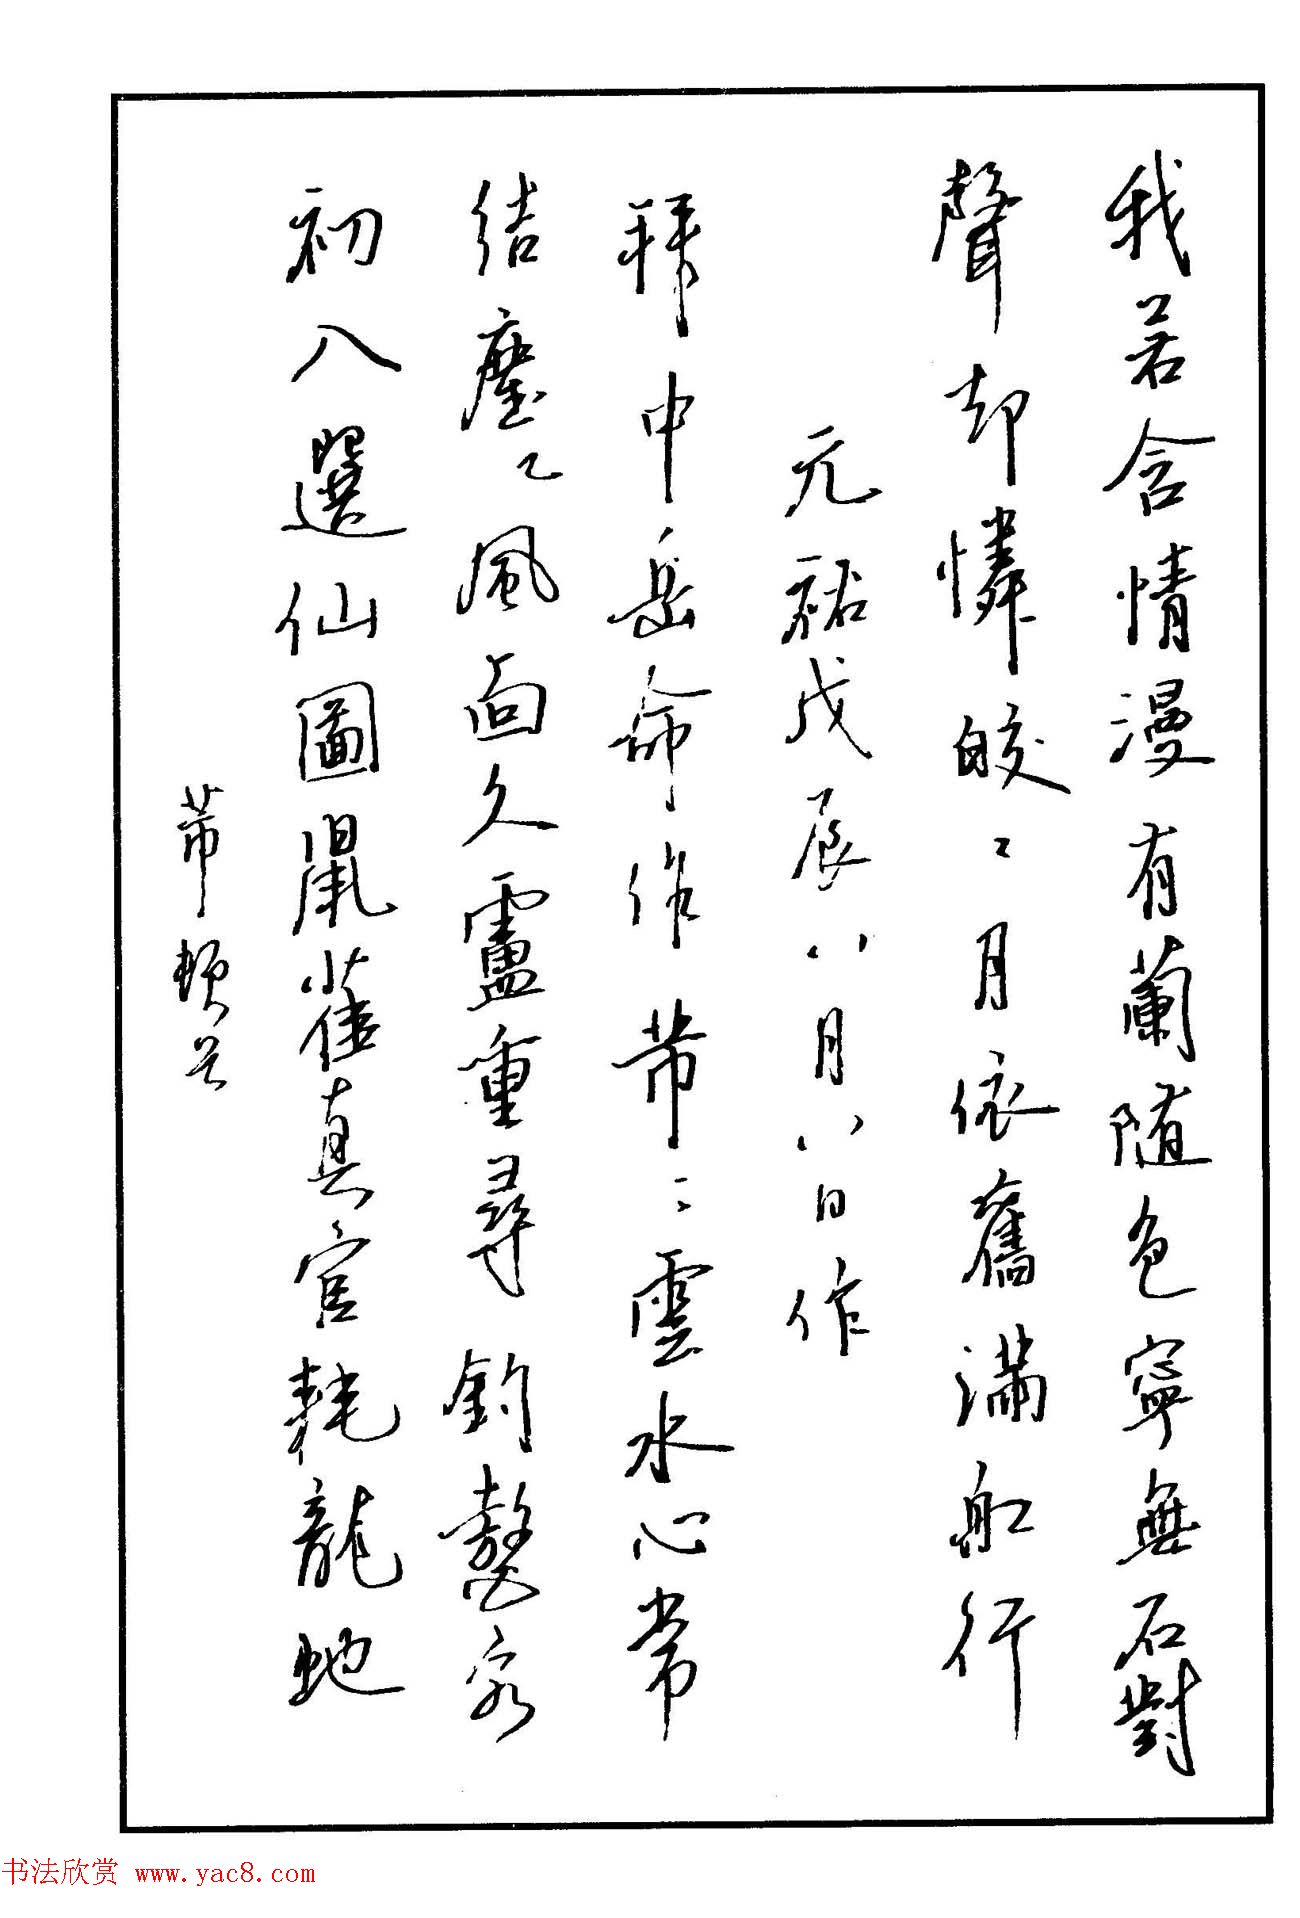 我若含情漫有蘭随色寧無石對
聲却憐皎〻月依舊滿舡行
元祐戊辰八月八日作
拜中岳命作芾〻雲水心常
結塵風面久盧重尋釣鼇客
初入選仙圖鼠雀真官耗龍虵
芾頓首
书法欣赏 www.yac8.com